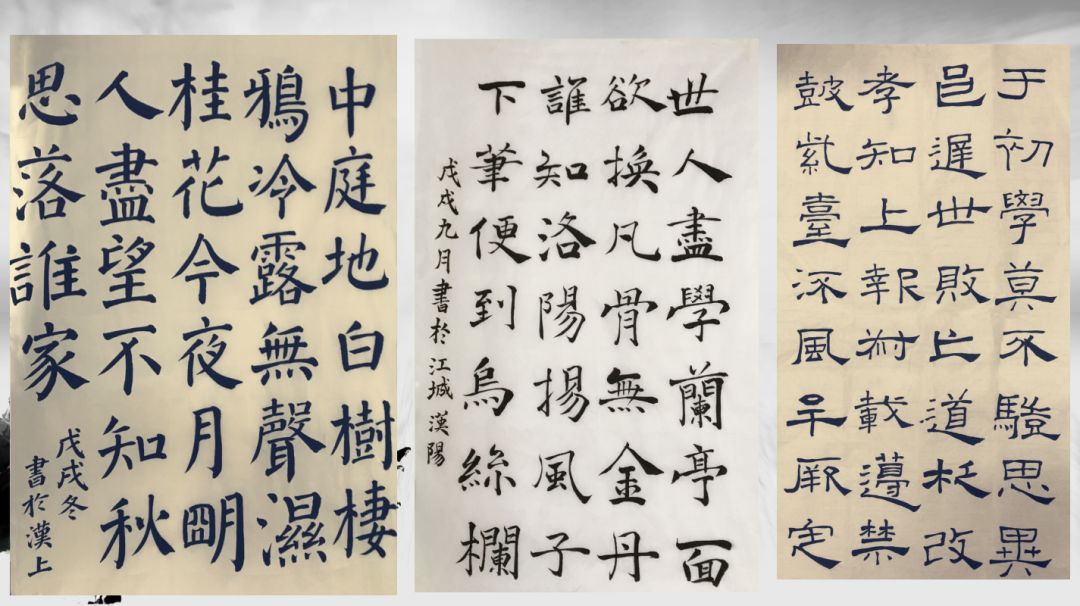 中庭地白樹棲
鴉冷露無聲濕
桂花今夜月朙
人盡望不知秋
思落誰家
戊戌冬
書於漢上
世人盡學蘭亭面
欲換凡骨無金丹
誰知洛陽揚風子
下筆便到烏絲欄
戊戌九月書於江城漢陽
于初學莫不思異
邑遲世敗亡道改
孝知上報術載遵禁
鼓紫臺深風平厥定